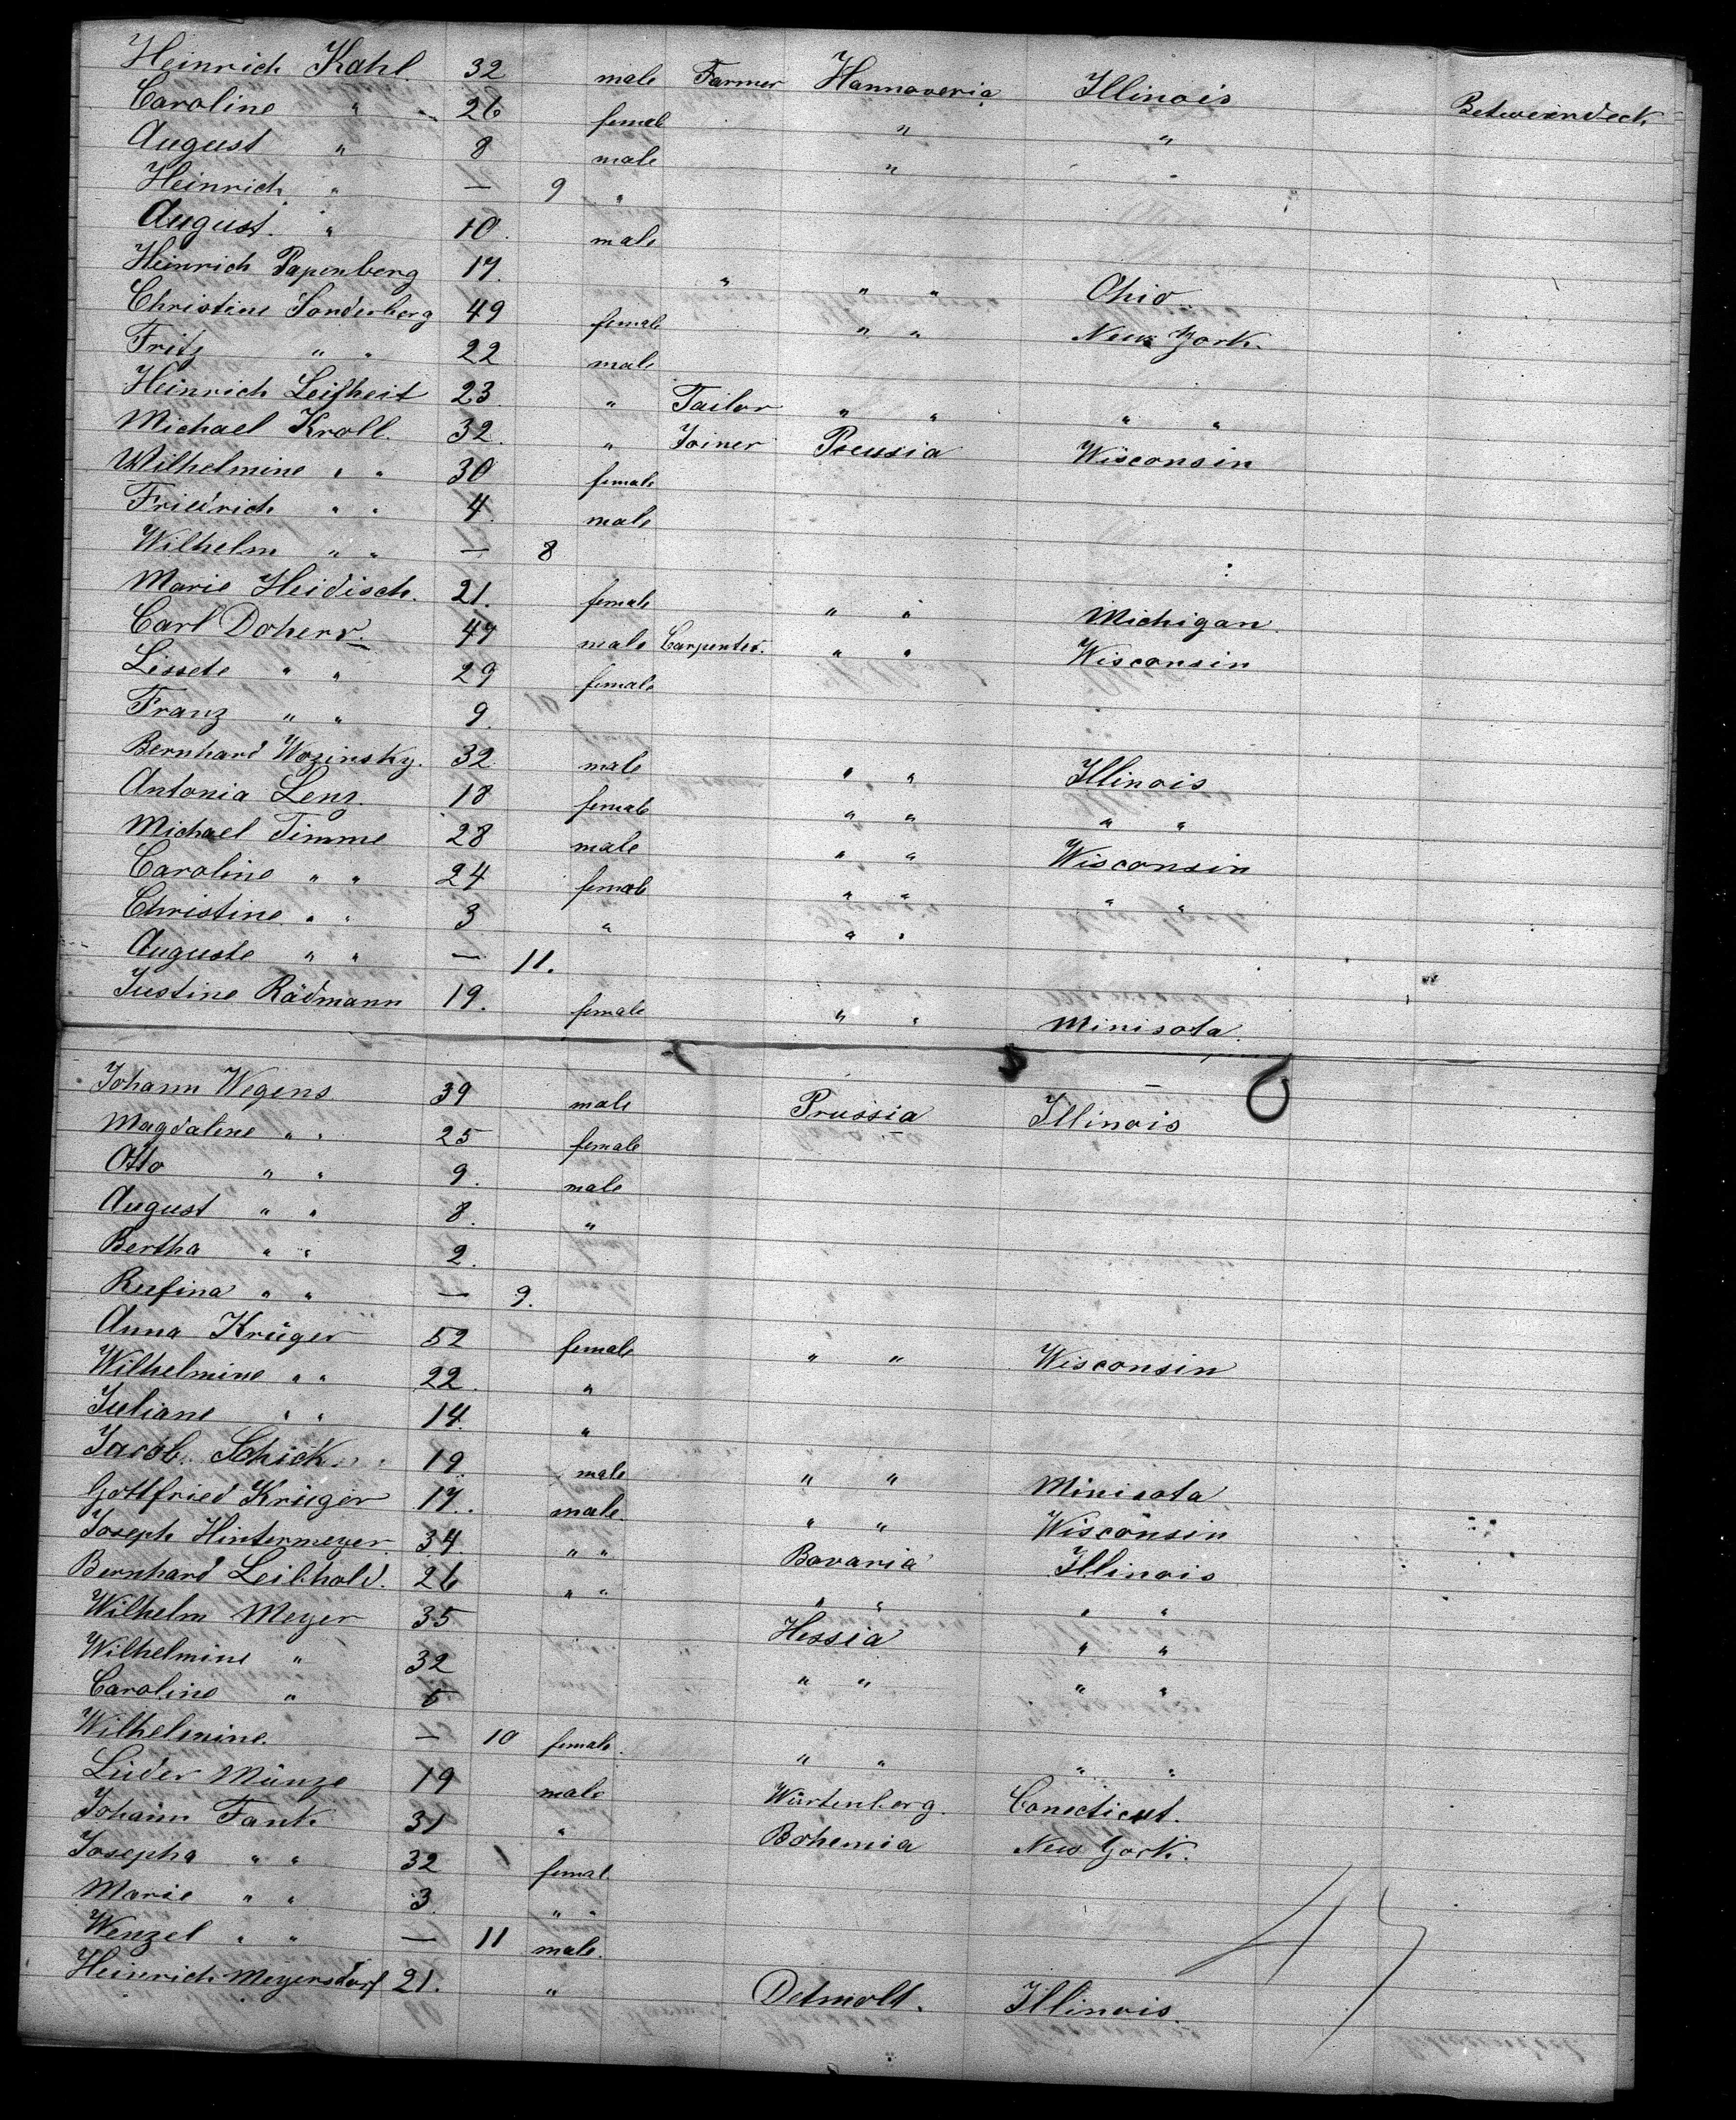 Heinrich Kahl. 32 male Farmer Hannoveria Illinois Betweendeck
Caroline " 26 female " "
August " 8 male " "
Heinrich " — 9 "
August. " 10. male
Heinrich Papenberg 17. " " " Ohio
Christine Sonderberg 49 female " " New York.
Fritz " " 22 male
Heinrich Leifheit 23. " Tailor " " " "
Michael Kroll. 32. " Joiner Preusia Wisconsin
Wilhelmine " " 30 female
Friedrich " " 4. male
Wilhelm " " — 8
Marie Heidisch. 21. female " " Michigan.
Carl Doherr. 47 male Carpenter. " " Wisconsin
Lissete " " 29 female
Franz " " 9.
Bernhard Wozinsky. 32. male " " Illinois
Antonia Lenz. 18 female " " " "
Michael Timme 28 male " " Wisconsin
Caroline " " 24 female " " " "
Christine " " 3 " " "
Auguste " " — 11.
Justine Rädmann 19. female " " Minisota.
Johann Wegens 39 male Prussia Illinois
Magdalene " " 25 female
Otto " " 9. male
August " " 8. "
Bertha " " 2.
Rufina " " — 9.
Anna Krüger 52 female " " Wisconsin
Wilhelmine " " 22. "
Juliane " " 14. "
Jacob Schick 19. male " " Minisota
Gottfried Krüger 17. male " " Wisconsin
Joseph Hintermeyer. 34. " " Bavaria Illinois
Bernhard Leibhold. 26 " " " " " "
Wilhelm Meyer 35 Hessia " "
Wilhelmine " 32 " " " "
Caroline " 5
Wilhelmine. — 10 female. " " " "
Lüder Münze 19 male Würtenberg. Conecticut.
Johann Fank 31 " Bohemia New York.
Josepha " " 32 femal.
Marie " " 3. " "
Wenzel " " — 11 male.
Heinrich Meyersdorf 21. " Detmold. Illinois.